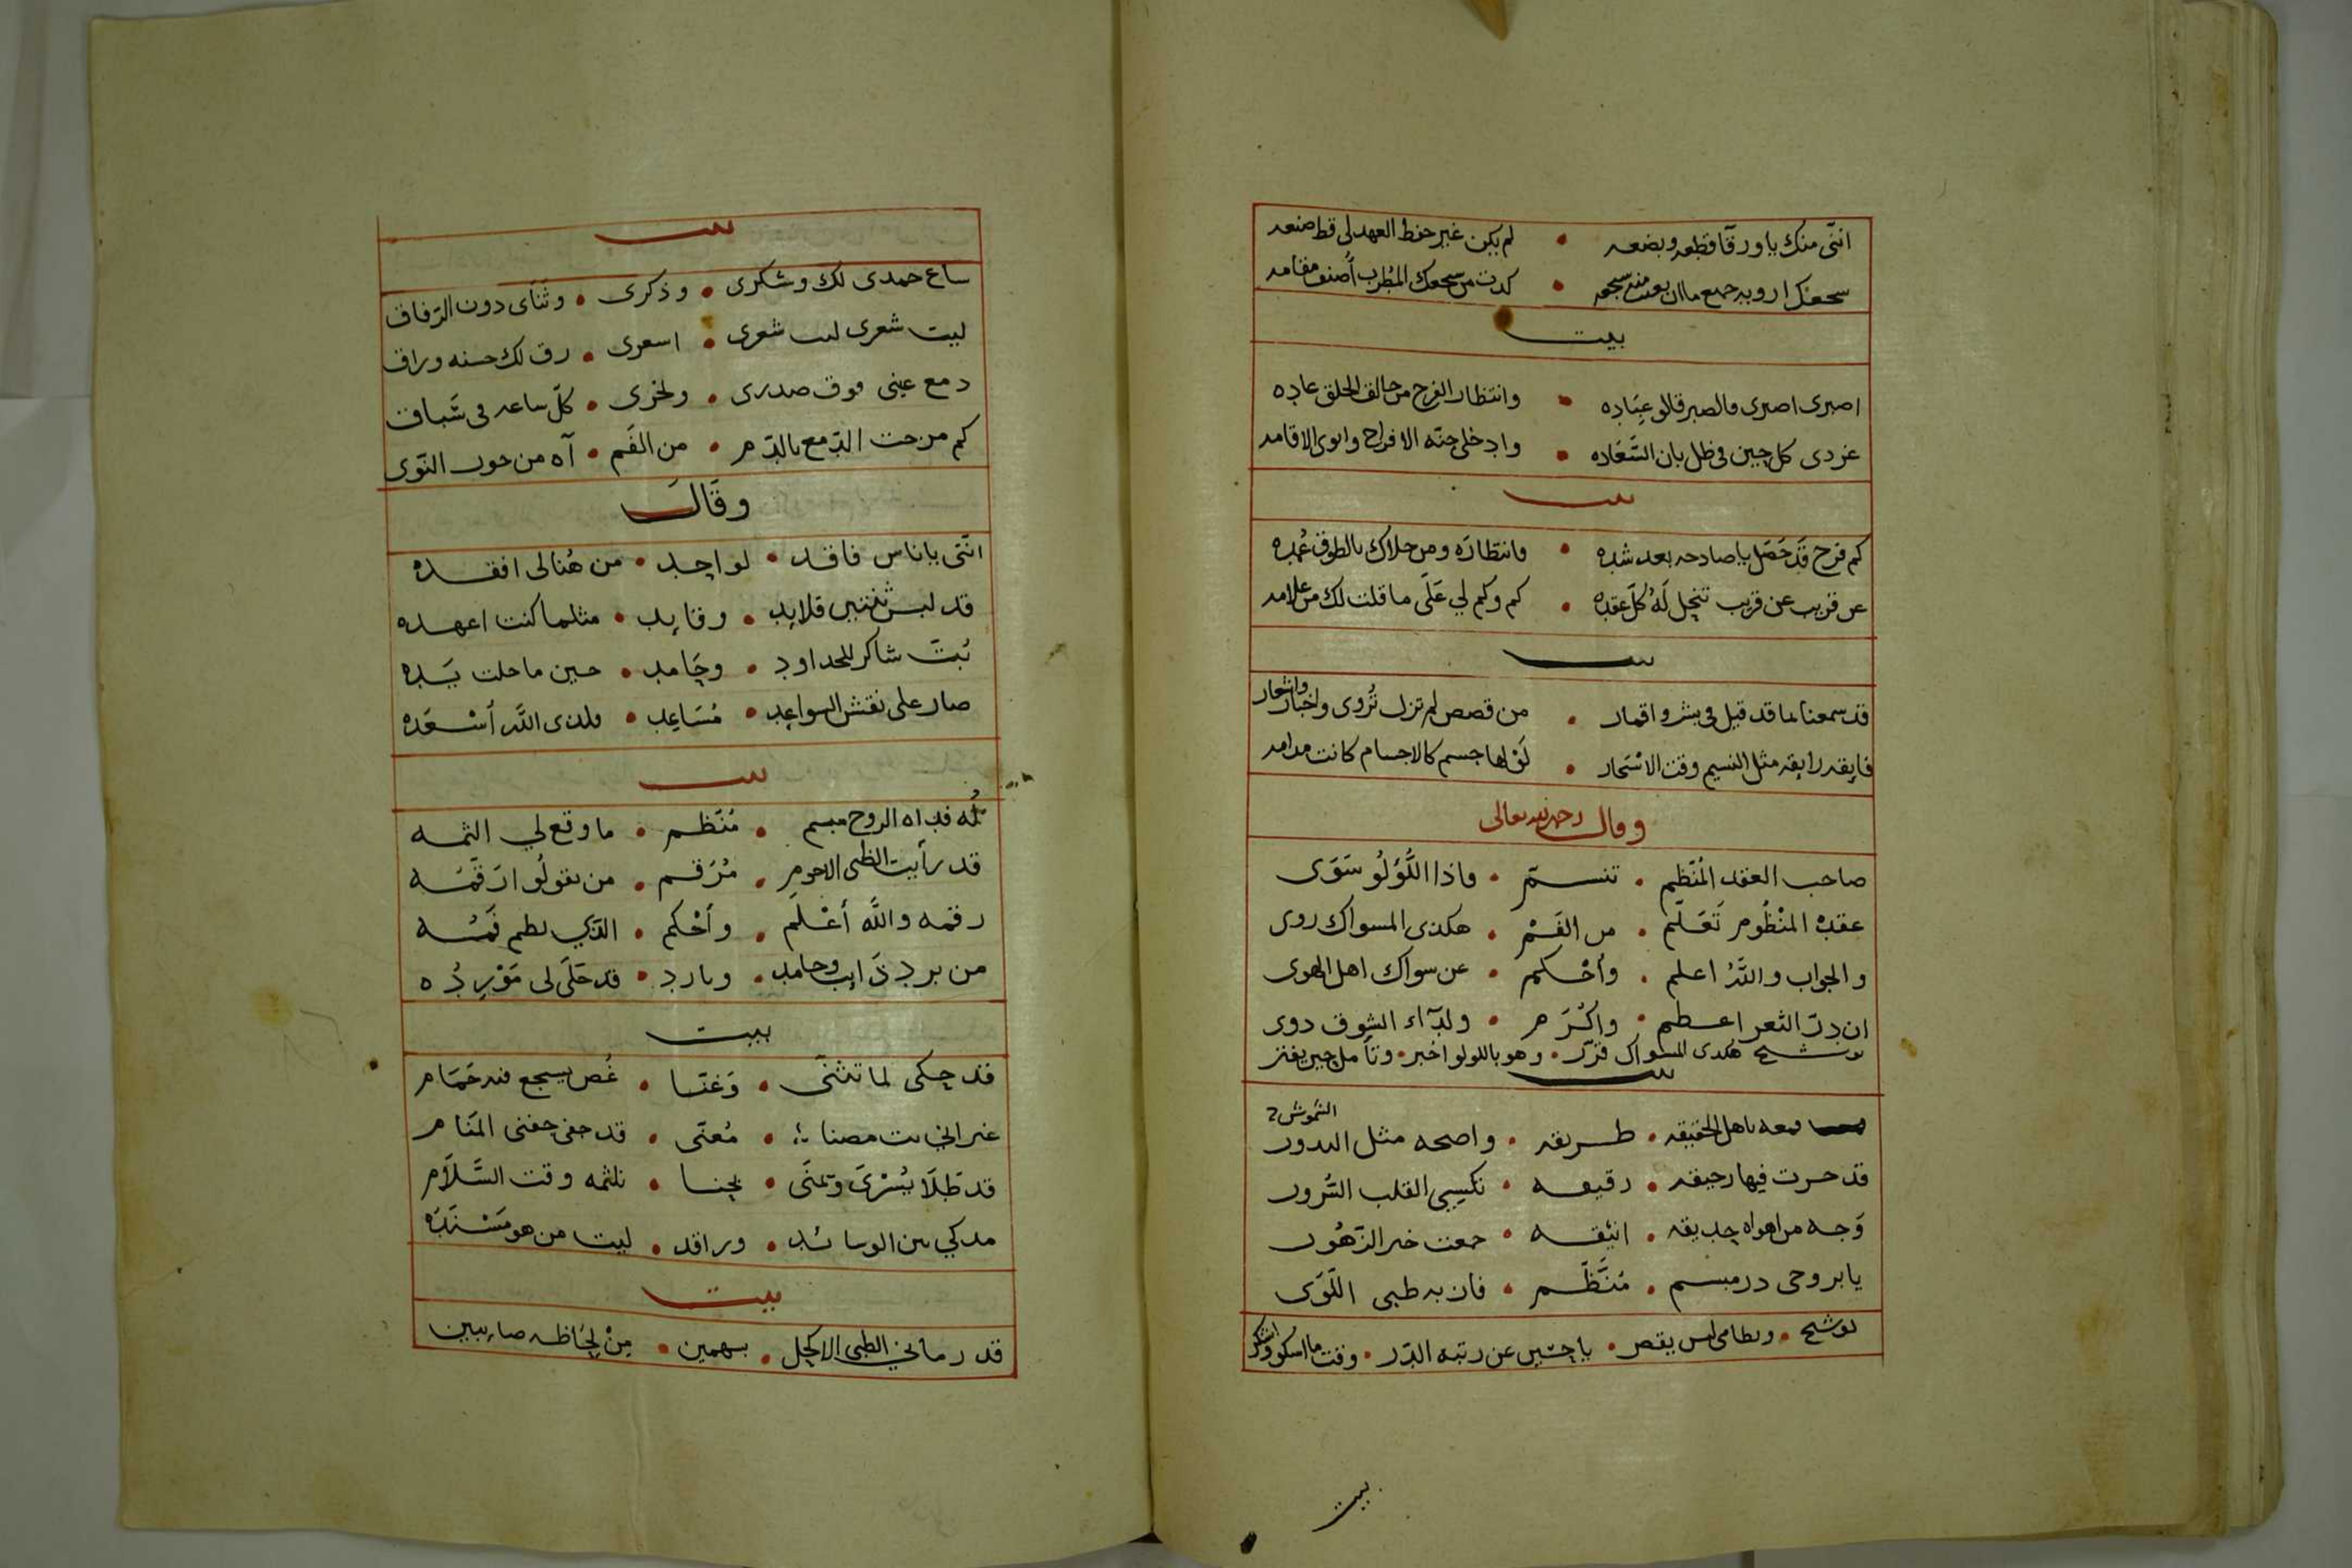 انتى منك ياورقا قطعه وبضعه • لم يكن غير حفظ العهد لى قط صنعه
سجعك اروبه جميع ماان بعت منه سجعه • كدت من سجعك المطرب أصنف مقامه
بيت
اصبرى اصبرى فالصبر قالو عباده • وانتظار الفرج من خالق الخلق عاده
غردى كل حين فى ظل بان السعاده • وادخلى جنه الافراح وانوى الاقامه
بيت
كم فرح قد حصل ياصادحه بعد شده • فانتظاره ومن حلاك بالطوق عمده
عن قريب عن قريب تنحل له كل عقده • كم وكم لي على ماقلت لك من علامه
بيت
قد سمعنا بما قد قيل فى بشر واقمار • من قصص لم تزل تروى واخبار واشعار
فايقه رايقه مثل النسيم وقت الاسحار • لو لها جسم كالاجسام كانت مدامه
وقال رحمه الله تعالى
صاحب العقد المنظم • تبسم • فاذا اللؤلؤ سوى
عقده المنظوم تعلم • من الفم • هكذى المسواك روى
والجواب والله اعلم • وأحكم • عن سواك اهل الهوى
ان در الثغر اعظم • واكرم • ولدآء الشوق دوى
توشيح هكذى المسواك قرر • وهو باللولو اخبر • وتأمل حين يفتر
بيت
فمعه ياهل الحقيقه • طريقه • واضحه مثل البدور الشموش
قد حرت فيها رحيقه • رقيقه • تكسبى القلب السرور
وجه من اهواه حديقه • انيقه • جمعت خير الزهور
يابروحى در مبسم • منظم • فان به ظبى اللوى
توشيح • ونظامى ليس يقصر • ياحسين عن رتبه الدر • وقت ما اسكو واشكر
بيت
بيت
ساع حمدى لك وشكرى • وذكرى • وثنأى دون الرفاق
ليت شعرى ليت شعرى • اسعرى • رق لك حسنه وراق
دمع عينى فوق صدرى • ونحرى • كل ساعه فى شباق
كم مزجت الدمع بالدم • من الفم • آه من جور النوى
وقال
انتى ياناس فاقد • لواجد • من هنالى افقده
قد لبس ثنتين قلايد • وقايد • مثلما كنت اعهده
بت شاكر للحداود • وحامد • حين ما حلت يده
صار على نقش السواعد • مساعد • فلذى الله أسعده
بيت
له فداه الروح مبسم • منظم • ما وقع لي الثمه
قد رأيت الظبى الاحوم • مرقم • من يقولوا رقمه
رقمه والله أعلم • وأحكم • الذي نظم فمه
من برد ذايب وجامد • وبارد • قد حلى لى مورده
بيت
قد حكى لما تثنى • وغنا • غصن يسجع فيه حمام
غير انى بت مضنا • معنى • قد جفى جفنى المنام
قد طلا يسرى ويمنى • بحنا • نلثمه وقت السلام
مدكي بين الوسائد • وراقد • ليت من هو مسنده
بيت
قد رماني الظبى الاكحل • بسهمين • من لحاظه صايبين